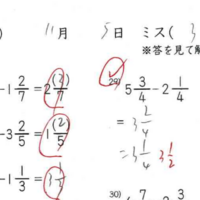 11月 5日 ミス( 3
※答を見て解
-1 2/7 = 2 (2)/7
-3 2/5 = 1 (2)/5
-1 1/3 = 3
29) 5 3/4 - 2 1/4
= 3 2/4
= 3 1/4 3 1/2
30)